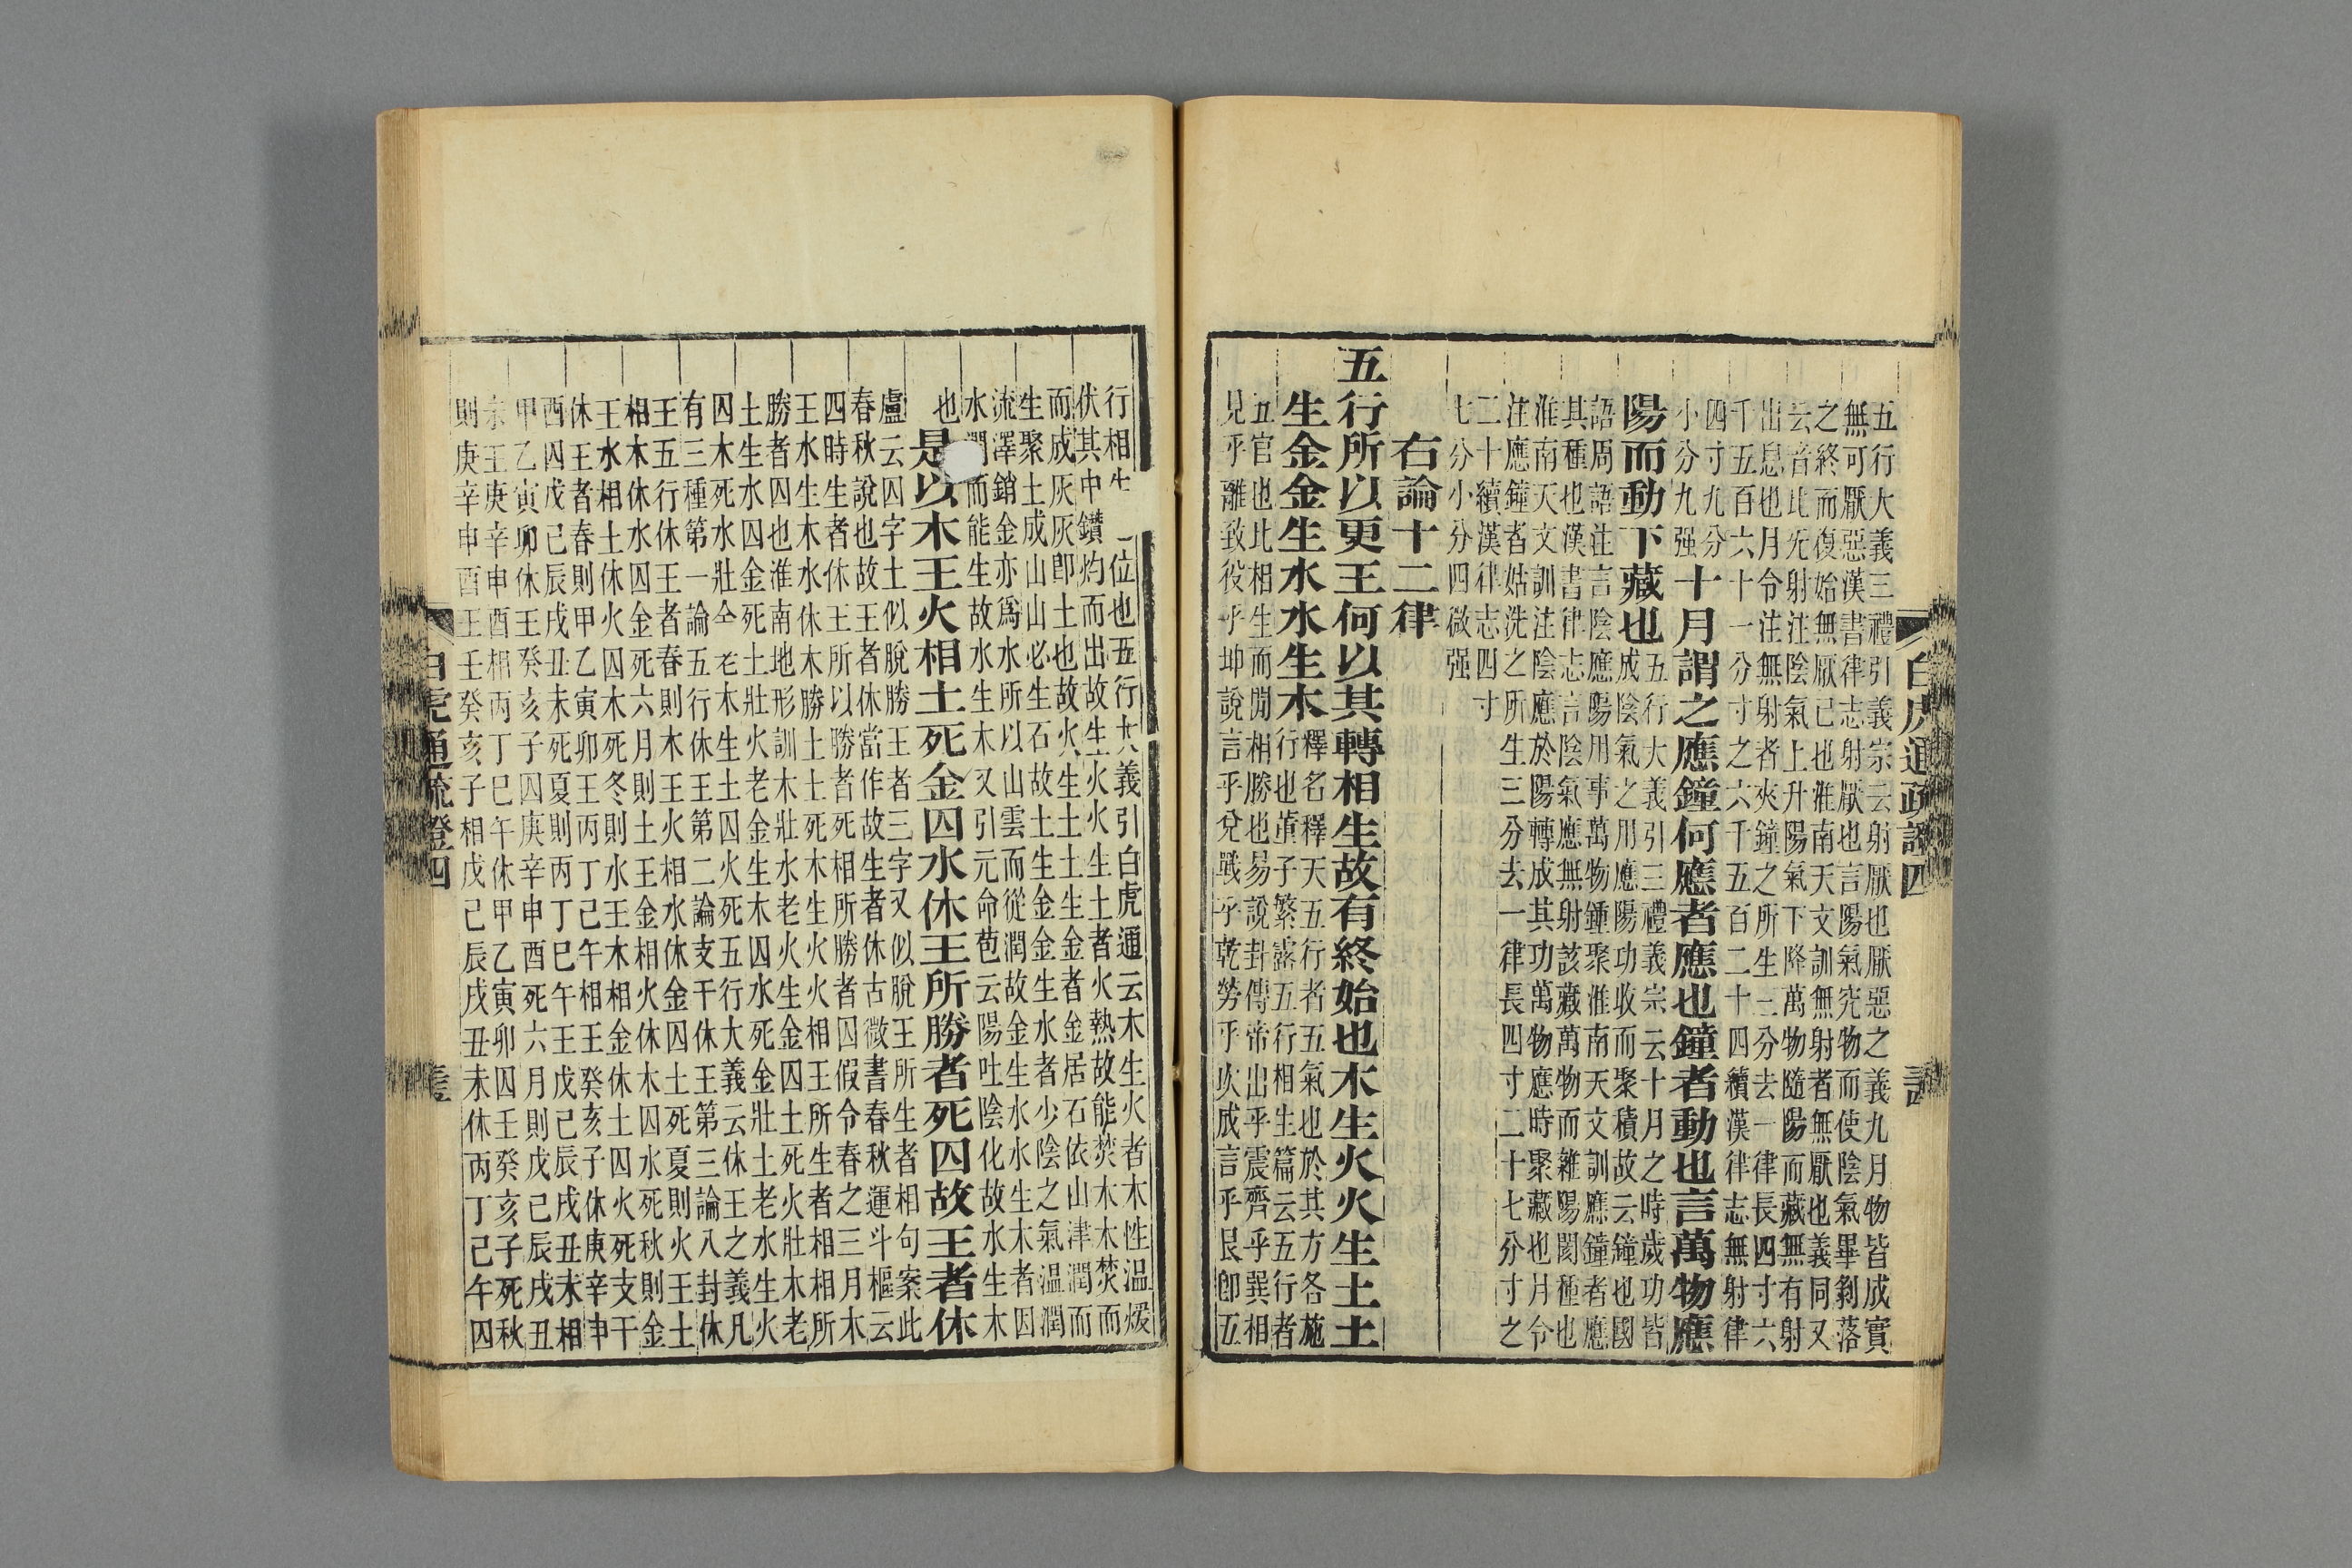 五行大義三禮引義宗云射厭也厭惡之義九月物皆成實
無可厭惡漢書律志射厭也言陽氣究物而使陰氣畢剝落
之終而復始無厭已也淮南天文訓無射者無厭也義同又
云音比无射注陰氣上升陽氣下降萬物隨陽而藏無有射
出息也月令注無射者夾鐘之所生三分去一律長四寸六
千五百六十一分寸之六千五百二十四續漢律志無射律
四寸九分
小分九强
十月謂之應鐘何應者應也鐘者動也言萬物應
陽而動下藏也
五行大義引三禮義宗云十月之時歲功皆
成陰氣之用應陽功收而聚積故云鐘也國
語周語注言陰應陽用事萬物鍾聚淮南天文訓應鐘者應
其種也漢書律志言陰氣應無射該藏萬物而雜陽閡種也
淮南天文訓注陰應於陽轉成其功萬物應時聚藏也月令
注應鐘者姑洗之所生三分去一律長四寸二十七分寸之
二十續漢律志四寸
七分小分四微强
右論十二律
五行所以更王何以其轉相生故有終始也木生火火生土土
生金金生水水生木
釋名釋天五行者五氣也於其方各施
行也董子繁露五行相生篇云五行者
五官也此相生而閒相勝也易說卦傳帝出乎震齊乎巽相
見乎離致役乎坤說言乎兌戰乎乾勞乎坎成言乎艮卽五
行相生 位也五行大義引白虎通云木生火者木性温煖
伏其中鑽灼而出故生火火生土者火熱故能焚木木焚而
而成灰灰卽土也故火生土土生金者金居石依山津潤而
生聚土成山山必生石故土生金金生水者少陰之氣温潤
流澤銷金亦爲水所以山雲而從潤故金生水水生木者因
水潤而能生故水生木又引元命苞云陽吐陰化故水生木
也
是以木王火相土死金囚水休王所勝者死囚故王者休
盧云囚字土似脫勝王者三字又似脫王所生者相句案此
春秋說也故王者休當作故生者休古微書春秋運斗樞云
四時生者休王所以勝者死相所勝者囚假令春之三月木
王水生木水休木勝土土死木生火火相王所生者相相所
勝者囚也淮南地形訓木壯水老火生金囚土死火壯木老
土生水囚金死土壯火老金生木囚水死金壯土老水生火
囚木死水壯金老木生土囚火死五行大義云休王之義凡
有三種第一論五行休王第二論支干休王第三論八卦休
王五行休王者春則木王火相水休金囚土死夏則火王土
相木休水囚金死六月則土王金相火休木囚水死秋則金
王水相土休火囚木死冬則水王木相金休土囚火死支干
休王者春則甲乙寅卯王丙丁巳午相壬癸亥子休庚辛申
酉囚戊己辰戌丑未死夏則丙丁巳午王戊己辰戌丑未相
甲乙寅卯休壬癸亥子囚庚辛申酉死六月則戊己辰戌丑
未王庚辛申酉相丙丁巳午休甲乙寅卯囚壬癸亥子死秋
則庚辛申酉王壬癸亥子相戊己辰戌丑未休丙丁巳午囚